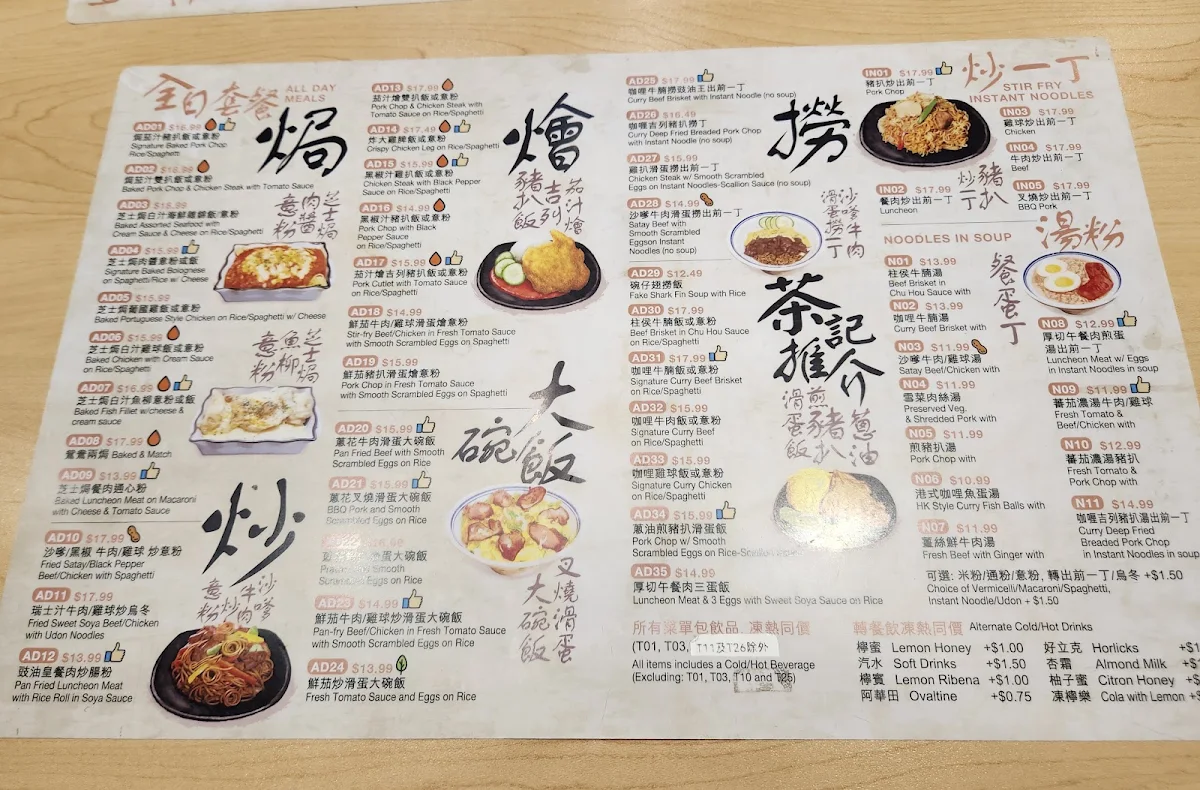 全日套餐 ALL DAY
MEALS
焗
AD01 $16.99
焗茄汁豬扒飯或意粉
Signature Baked Pork Chop
Rice/Spaghetti
AD02 $16.99
焗茄汁雙扒飯或意粉
Baked Pork Chop & Chicken Steak with Tomato Sauce
AD03 $18.99
芝士焗白汁海鮮雞錦飯/意粉
Baked Assorted Seafood with
Cream Sauce & Cheese on Rice/Spaghetti
AD04 $15.99
芝士焗肉醬意粉或飯
Signature Baked Bolognese
on Spaghetti/Rice w/ Cheese
芝士焗
肉醬
意粉
AD05 $15.99
芝士焗葡國雞飯或意粉
Baked Portuguese Style Chicken on Rice/Spaghetti w/ Cheese
AD06 $15.99
芝士焗白汁雞球飯或意粉
Baked Chicken with Cream Sauce
on Rice/Spaghetti
AD07 $16.99
芝士焗白汁魚柳意粉或飯
Baked Fish Fillet w/cheese &
cream sauce
芝士焗
魚柳
意粉
AD08 $17.99
鴛鴦兩焗 Baked & Match
AD09 $13.99
芝士焗餐肉通心粉
Baked Luncheon Meat on Macaroni
with Cheese & Tomato Sauce
炒
AD10 $17.99
沙嗲/黑椒 牛肉/雞球 炒意粉
Fried Satay/Black Pepper
Beef/Chicken with Spaghetti
AD11 $17.99
瑞士汁牛肉/雞球炒烏冬
Fried Sweet Soya Beef/Chicken
with Udon Noodles
AD12 $13.99
豉油皇餐肉炒腸粉
Pan Fried Luncheon Meat
with Rice Roll in Soya Sauce
沙嗲
牛肉
炒
意粉
AD13 $17.99
茄汁燴雙扒飯或意粉
Pork Chop & Chicken Steak with
Tomato Sauce on Rice/Spaghetti
AD14 $17.49
炸大雞脾飯或意粉
Crispy Chicken Leg on Rice/Spaghetti
AD15 $15.99
黑椒汁雞扒飯或意粉
Chicken Steak with Black Pepper
Sauce on Rice/Spaghetti
AD16 $14.99
黑椒汁豬扒飯或意粉
Pork Chop with Black
Pepper Sauce
on Rice/Spaghetti
AD17 $15.99
茄汁燴吉列豬扒飯或意粉
Pork Cutlet with Tomato Sauce
on Rice/Spaghetti
AD18 $14.99
鮮茄牛肉/雞球滑蛋燴意粉
Stir-fry Beef/Chicken in Fresh Tomato Sauce
with Smooth Scrambled Eggs on Spaghetti
AD19 $15.99
鮮茄豬扒滑蛋燴意粉
Pork Chop in Fresh Tomato Sauce
with Smooth Scrambled Eggs on Spaghetti
燴
茄汁燴
吉列
豬扒飯
大碗飯
AD20 $15.99
蔥花牛肉滑蛋大碗飯
Pan Fried Beef with Smooth
Scrambled Eggs on Rice
AD21 $15.99
蔥花叉燒滑蛋大碗飯
BBQ Pork and Smooth
Scrambled Eggs on Rice
滑蛋大碗飯
Smooth
Scrambled Eggs on Rice
AD23 $14.99
鮮茄牛肉/雞球炒滑蛋大碗飯
Pan-fry Beef/Chicken in Fresh Tomato Sauce
with Smooth Scrambled Eggs on Rice
AD24 $13.99
鮮茄炒滑蛋大碗飯
Fresh Tomato Sauce and Eggs on Rice
叉燒滑蛋
大碗飯
AD25 $17.99
咖喱牛腩撈豉油王出前一丁
Curry Beef Brisket with Instant Noodle (no soup)
AD26 $16.49
咖喱吉列豬扒撈丁
Curry Deep Fried Breaded Pork Chop
with Instant Noodle (no soup)
AD27 $15.99
雞扒滑蛋撈出前一丁
Chicken Steak w/ Smooth Scrambled
Eggs on Instant Noodles-Scallion Sauce (no soup)
AD28 $14.99
沙嗲牛肉滑蛋撈出前一丁
Satay Beef with
Smooth Scrambled
Eggson Instant
Noodles (no soup)
撈
沙嗲牛肉
滑蛋撈丁
AD29 $12.49
碗仔翅撈飯
Fake Shark Fin Soup with Rice
AD30 $17.99
柱侯牛腩飯或意粉
Beef Brisket in Chu Hou Sauce
on Rice/Spaghetti
AD31 $17.99
咖喱牛腩飯或意粉
Signature Curry Beef Brisket
on Rice/Spaghetti
AD32 $15.99
咖喱牛肉飯或意粉
Signature Curry Beef
on Rice/Spaghetti
AD33 $15.99
咖喱雞球飯或意粉
Signature Curry Chicken
on Rice/Spaghetti
AD34 $15.99
蔥油煎豬扒滑蛋飯
Pork Chop w/ Smooth
Scrambled Eggs on Rice-Scallion
AD35 $14.99
厚切午餐肉三蛋飯
Luncheon Meat & 3 Eggs with Sweet Soya Sauce on Rice
茶記推介
蔥油
煎豬扒
滑蛋飯
所有菜單包飲品, 凍熱同價
(T01, T03, T11及T26除外
All items includes a Cold/Hot Beverage
(Excluding: T01, T03, T10 and T25)
炒一丁
STIR FRY
INSTANT NOODLES
IN01 $17.99
豬扒炒出前一丁
Pork Chop
IN02 $17.99
餐肉炒出前一丁
Luncheon
豬扒
炒丁
IN03 $17.99
雞球炒出前一丁
Chicken
IN04 $17.99
牛肉炒出前一丁
Beef
IN05 $17.99
叉燒炒出前一丁
BBQ Pork
NOODLES IN SOUP 湯粉
N01 $13.99
柱侯牛腩湯
Beef Brisket in
Chu Hou Sauce with
N02 $13.99
咖喱牛腩湯
Curry Beef Brisket with
N03 $11.99
沙嗲牛肉/雞球湯
Satay Beef/Chicken with
N04 $11.99
雪菜肉絲湯
Preserved Veg.
& Shredded Pork with
N05 $11.99
煎豬扒湯
Pork Chop with
N06 $10.99
港式咖喱魚蛋湯
HK Style Curry Fish Balls with
N07 $11.99
薑絲鮮牛肉湯
Fresh Beef with Ginger with
餐蛋丁
N08 $12.99
厚切午餐肉煎蛋
湯出前一丁
Luncheon Meat w/ Eggs
in Instant Noodles in soup
N09 $11.99
蕃茄濃湯牛肉/雞球
Fresh Tomato &
Beef/Chicken with
N10 $12.99
蕃茄濃湯豬扒
Fresh Tomato &
Pork Chop with
N11 $14.99
咖喱吉列豬扒湯出前一丁
Curry Deep Fried
Breaded Pork Chop
in Instant Noodles in soup
可選: 米粉/通粉/意粉, 轉出前一丁/烏冬 +$1.50
Choice of Vermicelli/Macaroni/Spaghetti,
Instant Noodle/Udon + $1.50
轉餐飲凍熱同價 Alternate Cold/Hot Drinks
檸蜜 Lemon Honey +$1.00
汽水 Soft Drinks +$1.50
檸賓 Lemon Ribena +$1.00
阿華田 Ovaltine +$0.75
好立克 Horlicks +$1
杏霜 Almond Milk +$
柚子蜜 Citron Honey +$
凍檸樂 Cola with Lemon +$